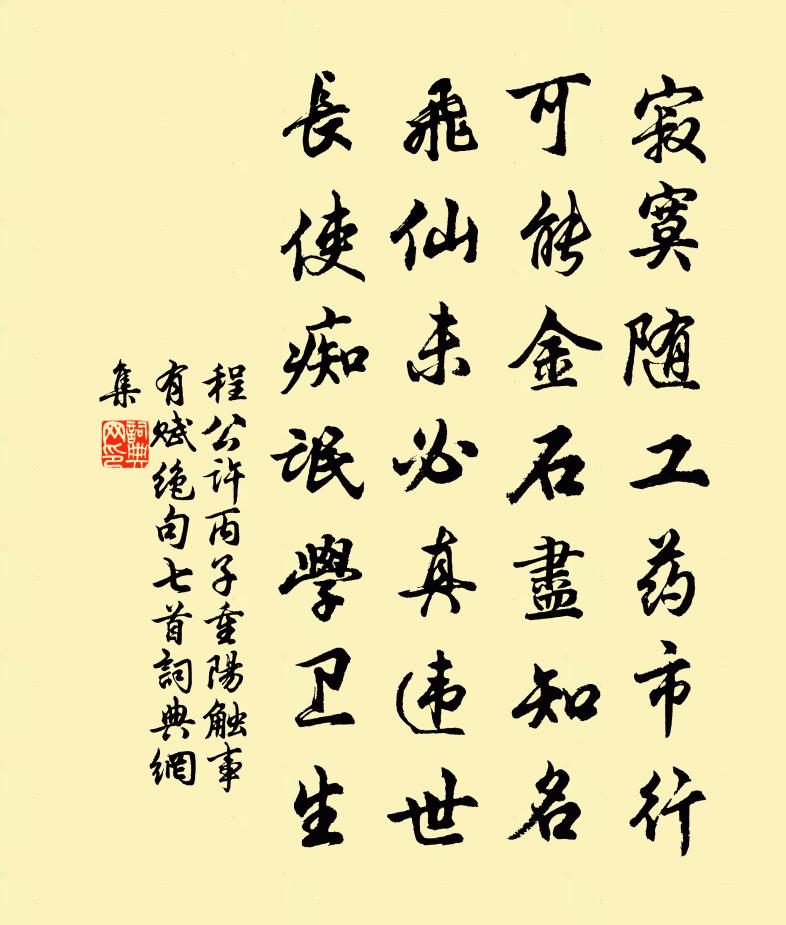 寂寞随工药市行
可能金石盡知名
飛仙未必真违世
長使痴氓學卫生
程公许丙子重陽触事
有赋绝句七首詞典網
集
詞典網印